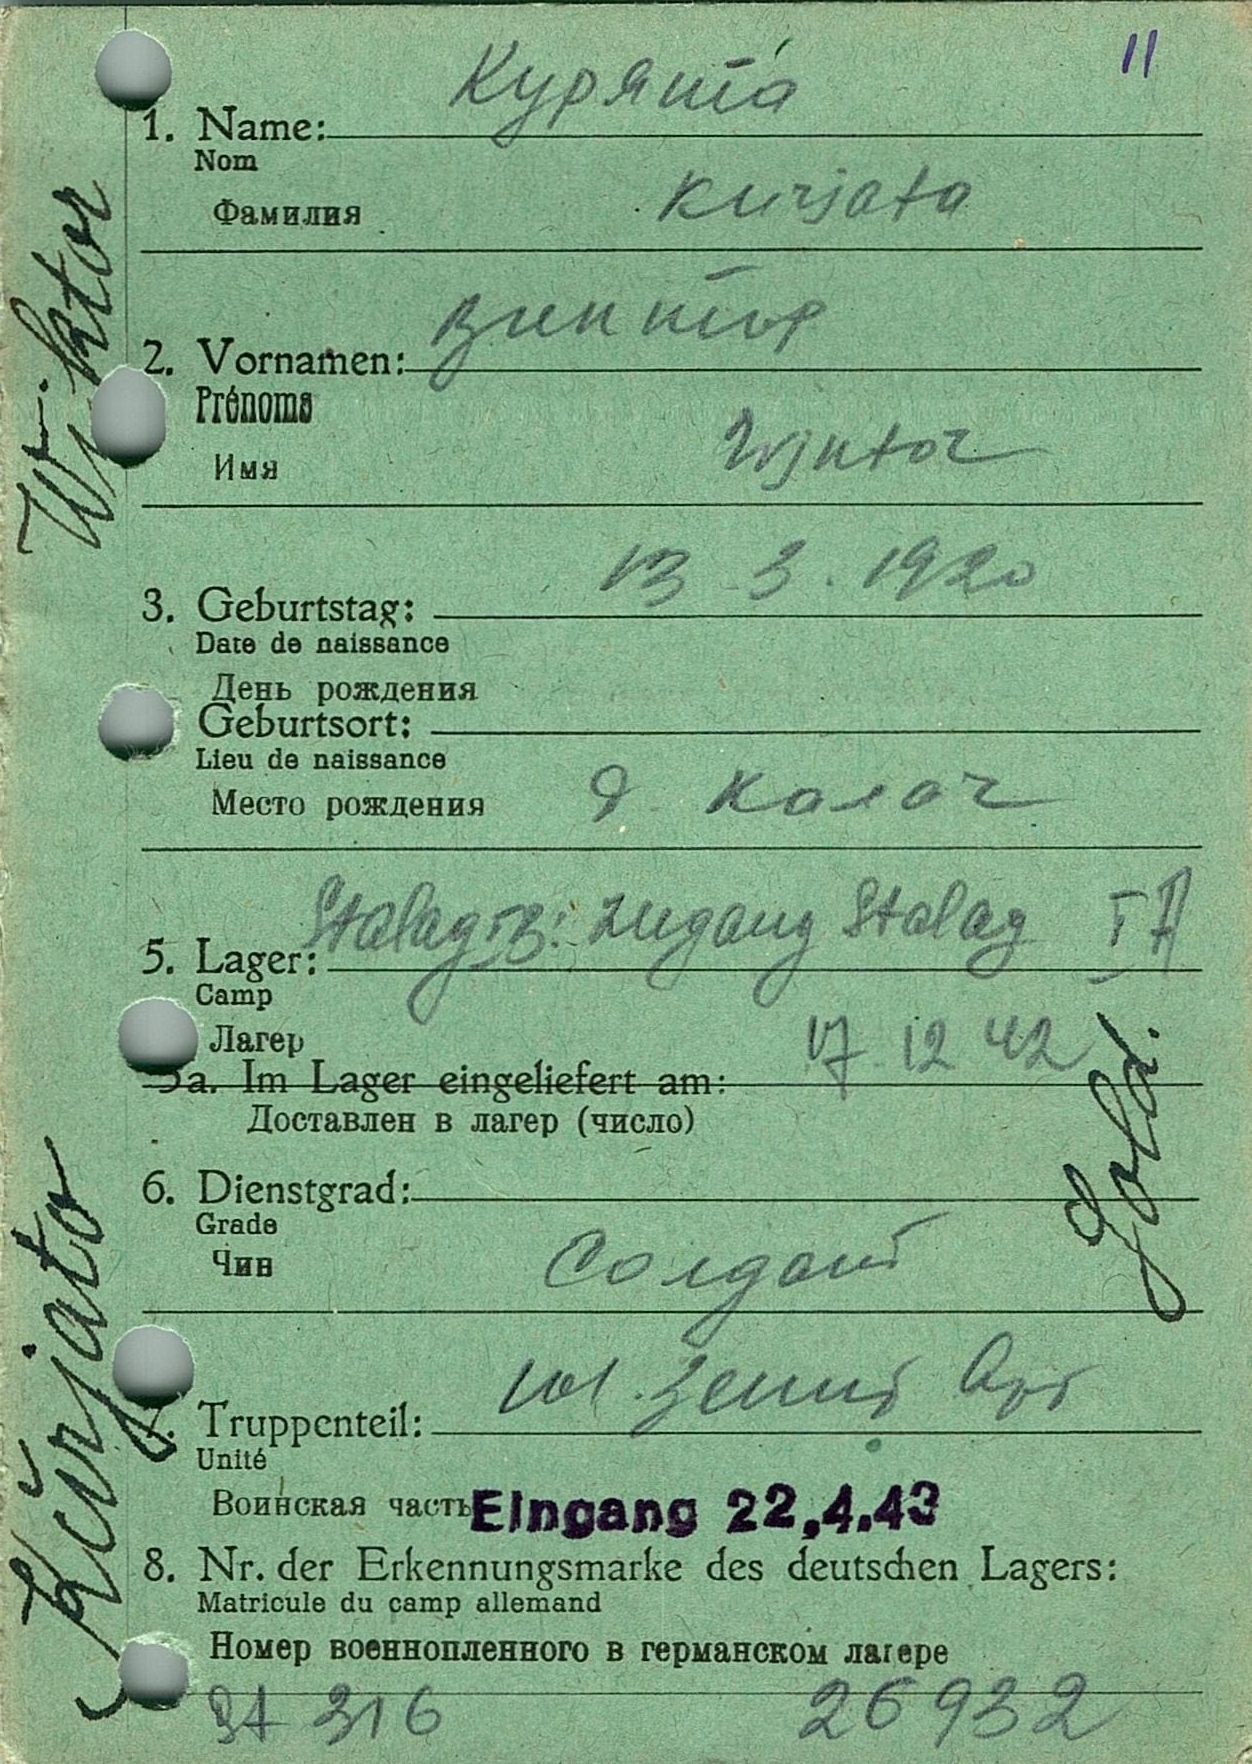 11
Курята
1. Name:
Nom
Kurjata
Фамилия
Виктор
2. Vornamen:
Prénoms
Wjktor
Имя
13 3. 1920
3. Geburtstag:
Date de naissance
День рождения
Geburtsort:
Lieu de naissance
Место рождения д Калач
Stalag IB: Zugang Stalag IA
5. Lager:
Camp
Лагер
17 12 42
5a. Im Lager eingeliefert am:
Доставлен в лагер (число)
6. Dienstgrad:
Grade
Чин
Солдат
Sold.
Зенит Арт
7. Truppenteil:
Unité
Воинская часть
Eingang 22.4.43
8. Nr. der Erkennungsmarke des deutschen Lagers:
Matricule du camp allemand
Номер военнопленного в германском лагере
St 316 26932
Kurjato
Wiktor